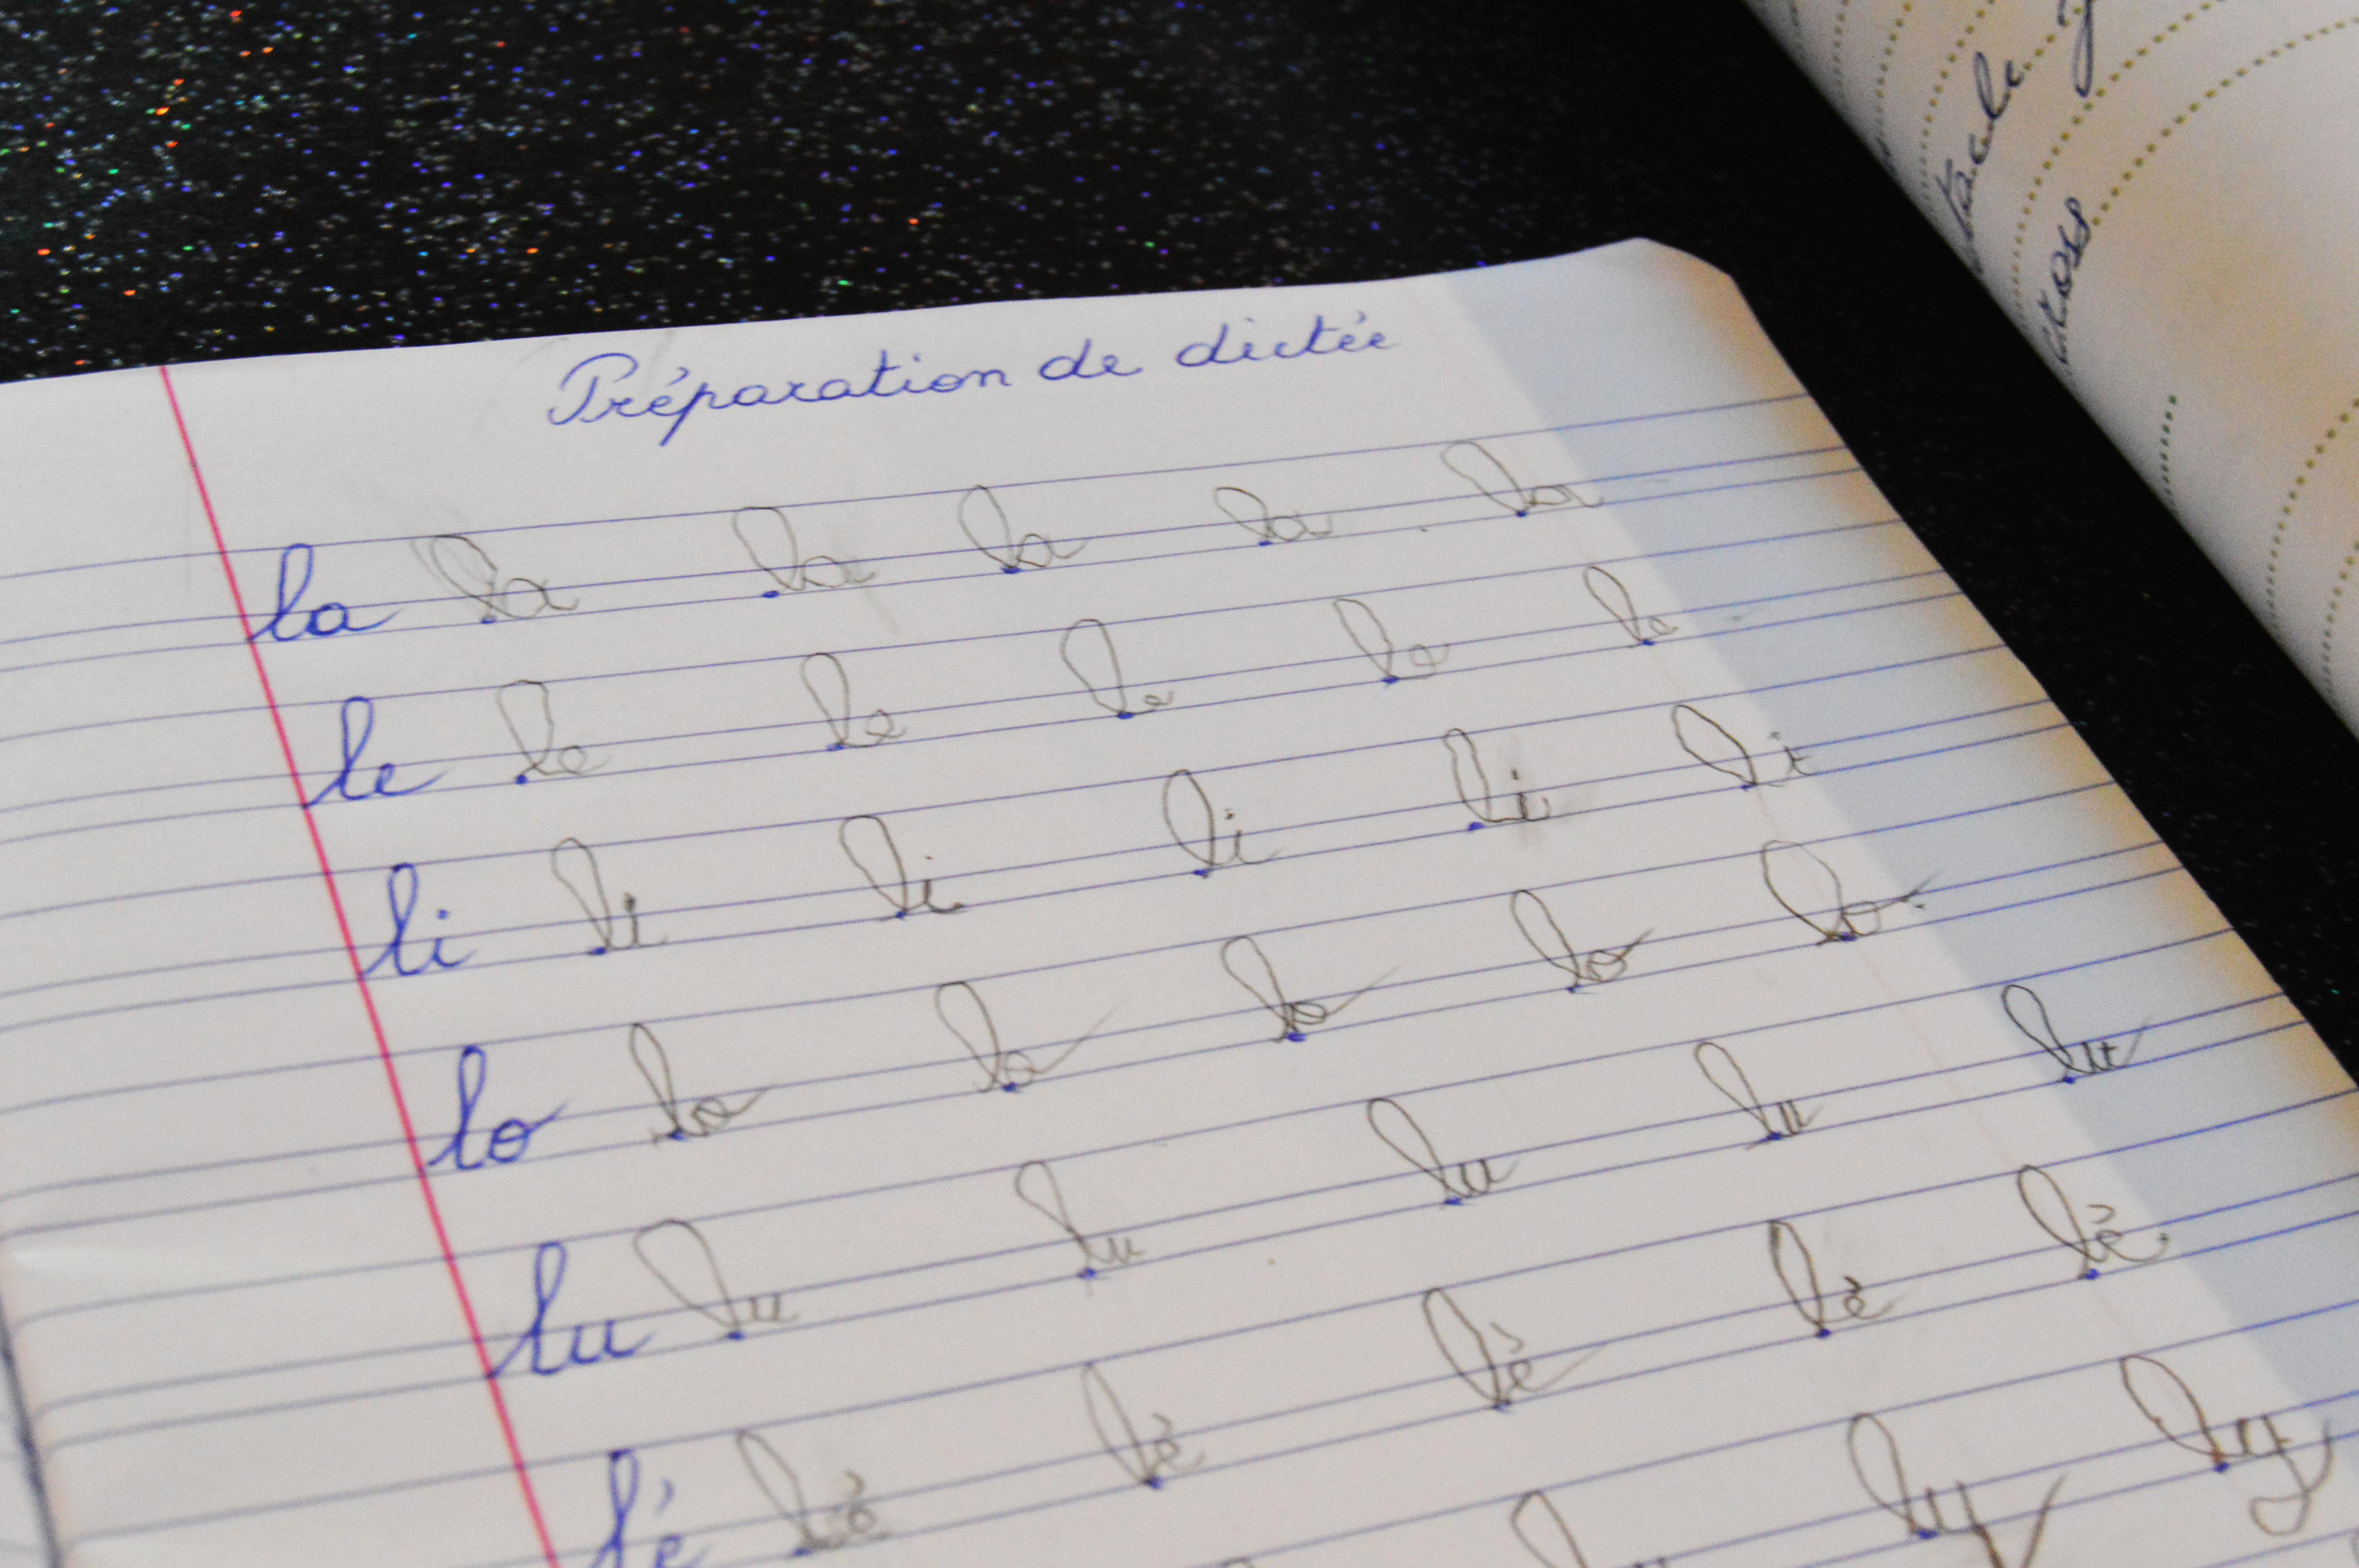 Préparation de dictée
la la la la la la
le le le le le le
li li li li li li
lo lo lo lo lo lo
lu lu lu lu lu lu
lé lé lé lé lé lé
ly ly